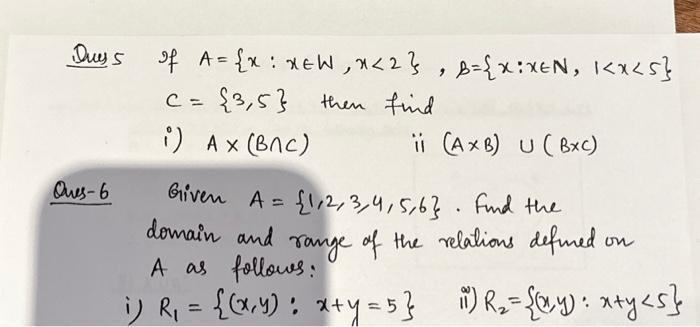 Ques 5 If A = {x : x∈W, x<2}, B={x:x∈N, 1<x<5}
C = {3,5} then find
i) A × (B∩C) ii (A×B) ∪ (B×C)
Ques-6 Given A = {1,2,3,4,5,6}. Find the
domain and range of the relations defined on
A as follows:
i) R₁ = {(x,y) : x+y=5} ii) R₂={(x,y): x+y<5}